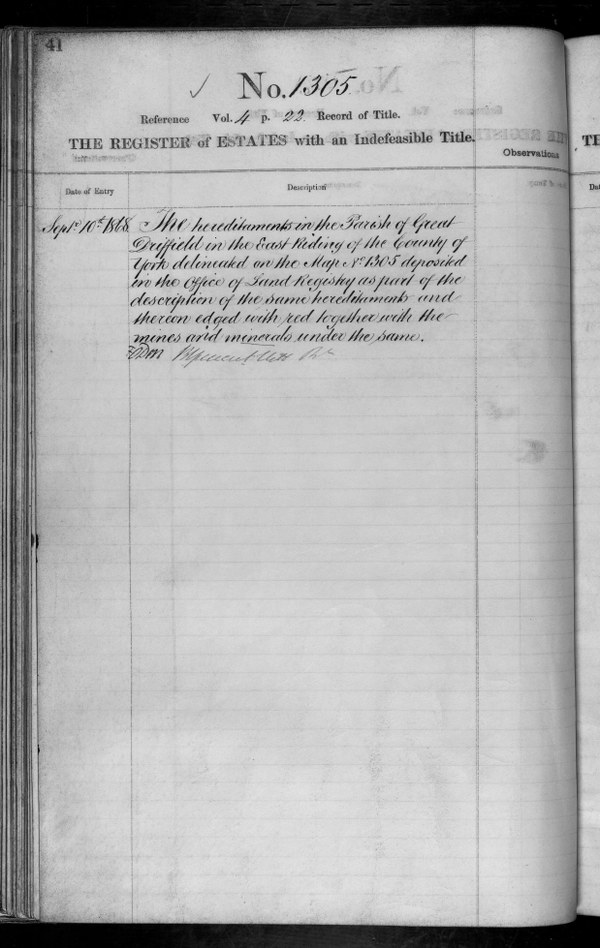 41
No. 1305
Reference Vol. 4 p. 22. Record of Title.
THE REGISTER of ESTATES with an Indefeasible Title.
Observations
Date of Entry
Description
Septr. 10th. 1868.
The hereditaments in the Parish of Great
Driffield in the East Riding of the County of
York delineated on the Map No. 1305 deposited
in the Office of Land Registry as part of the
description of the same hereditaments and
thereon edged with red together with the
mines and minerals under the same.